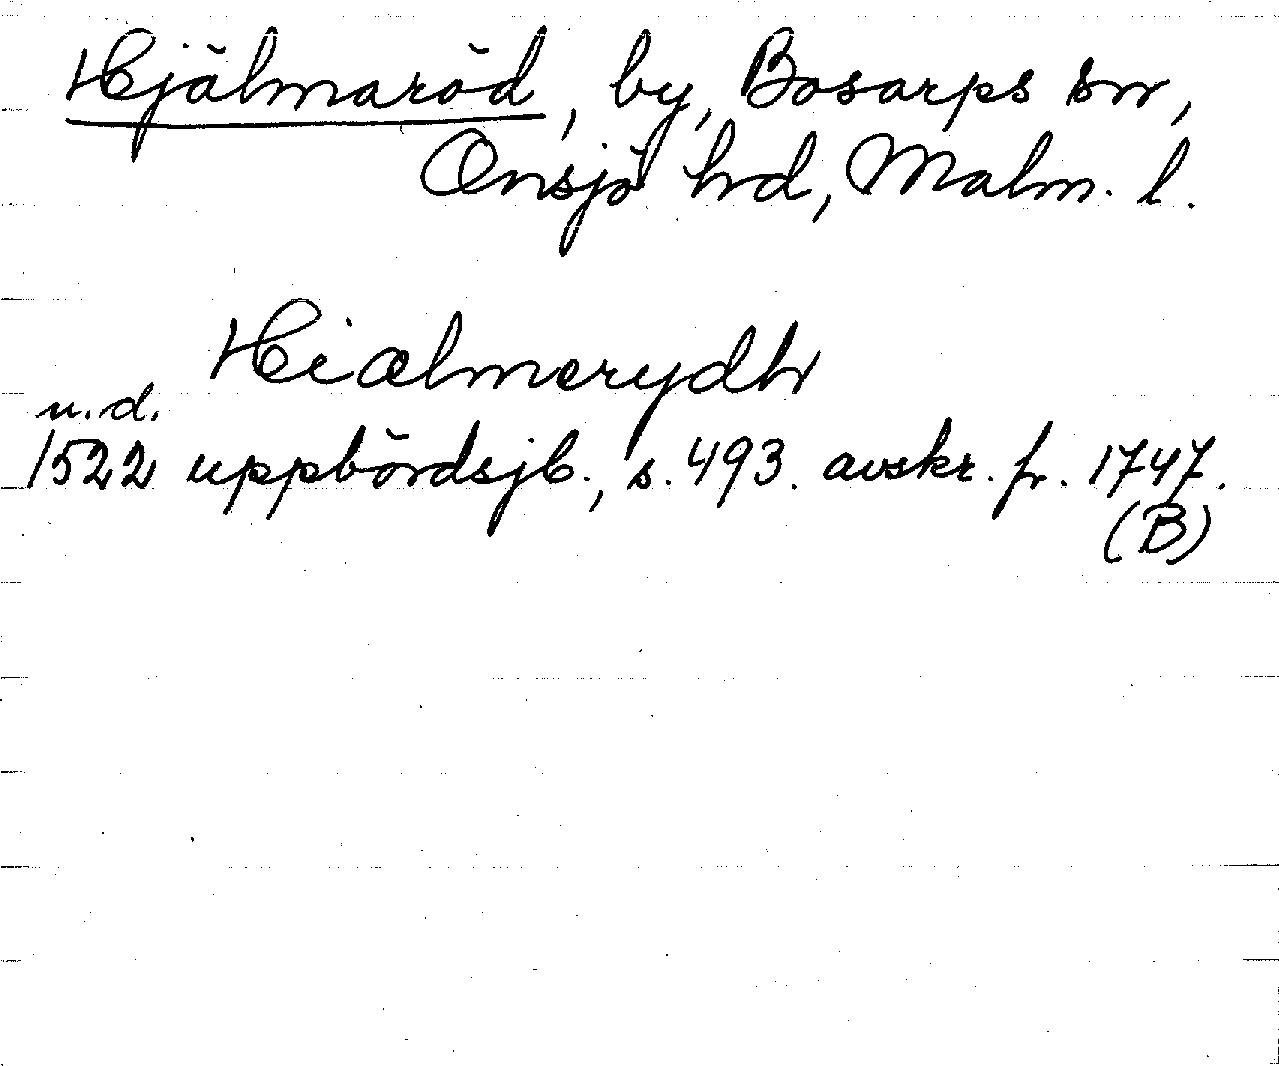 Hjälmaröd, by, Bosarps sn,
Onsjö hd, Malm. l.
Hiælmerydh
u.d.
1522 uppbördsjb., s. 493. avskr. fr. 1747.
(B)